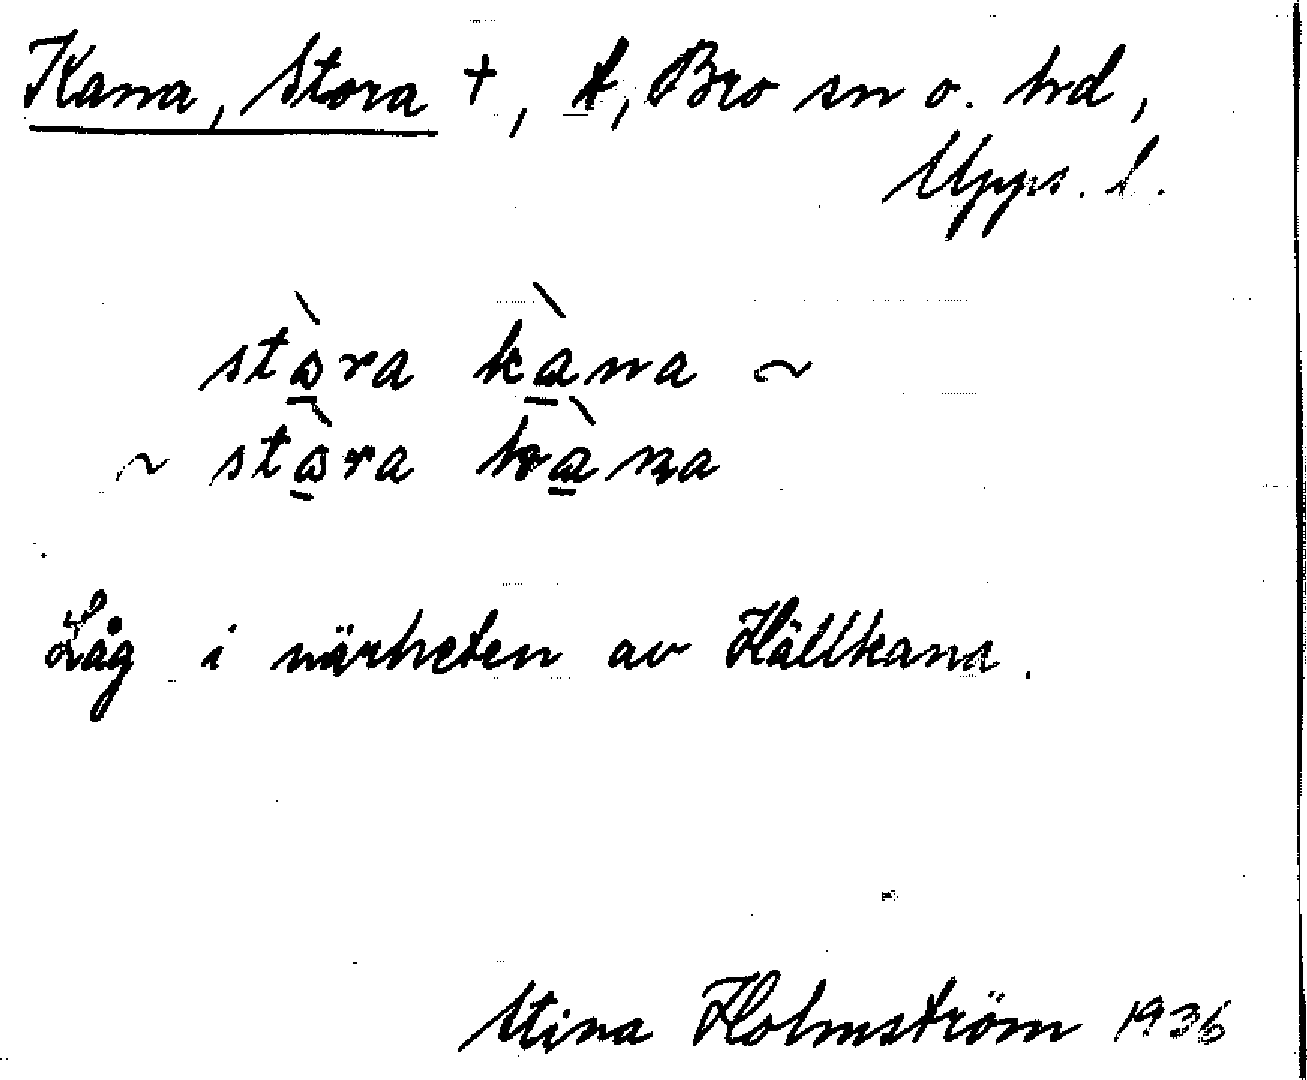 Kana, Stora +, t, Bro sn o. hd,
Upps. l.
stὰra kàna ~
~ stὰra kàna
Låg i närheten av Hällkana.
Stina Holmström 1936